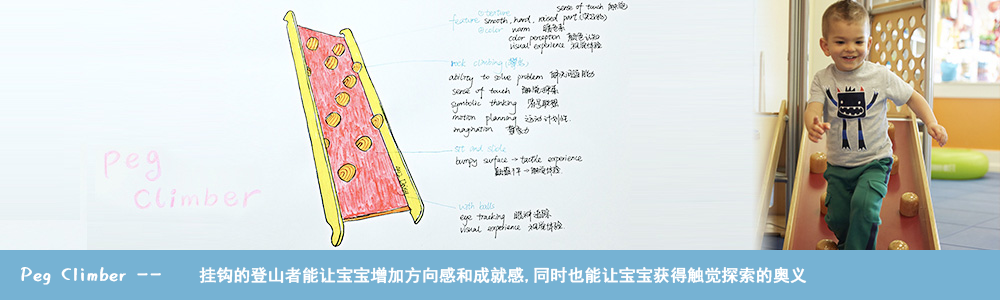 ① texture
sense of touch
feature smooth, hard, raised part
② color warm 暖色系
color perception 颜色认知
visual experience 视觉体验
rock climbing
ability to solve problem 解决问题能力
sense of touch 触觉探索
symbolic thinking
motion planning 运动计划
imagination 想象力
sit and slide
bumpy surface → tactile experience
触觉体验
with balls
eye tracking 眼球追踪
visual experience 视觉体验
Peg
Climber
Peg Climber -- 挂钩的登山者能让宝宝增加方向感和成就感,同时也能让宝宝获得触觉探索的奥义